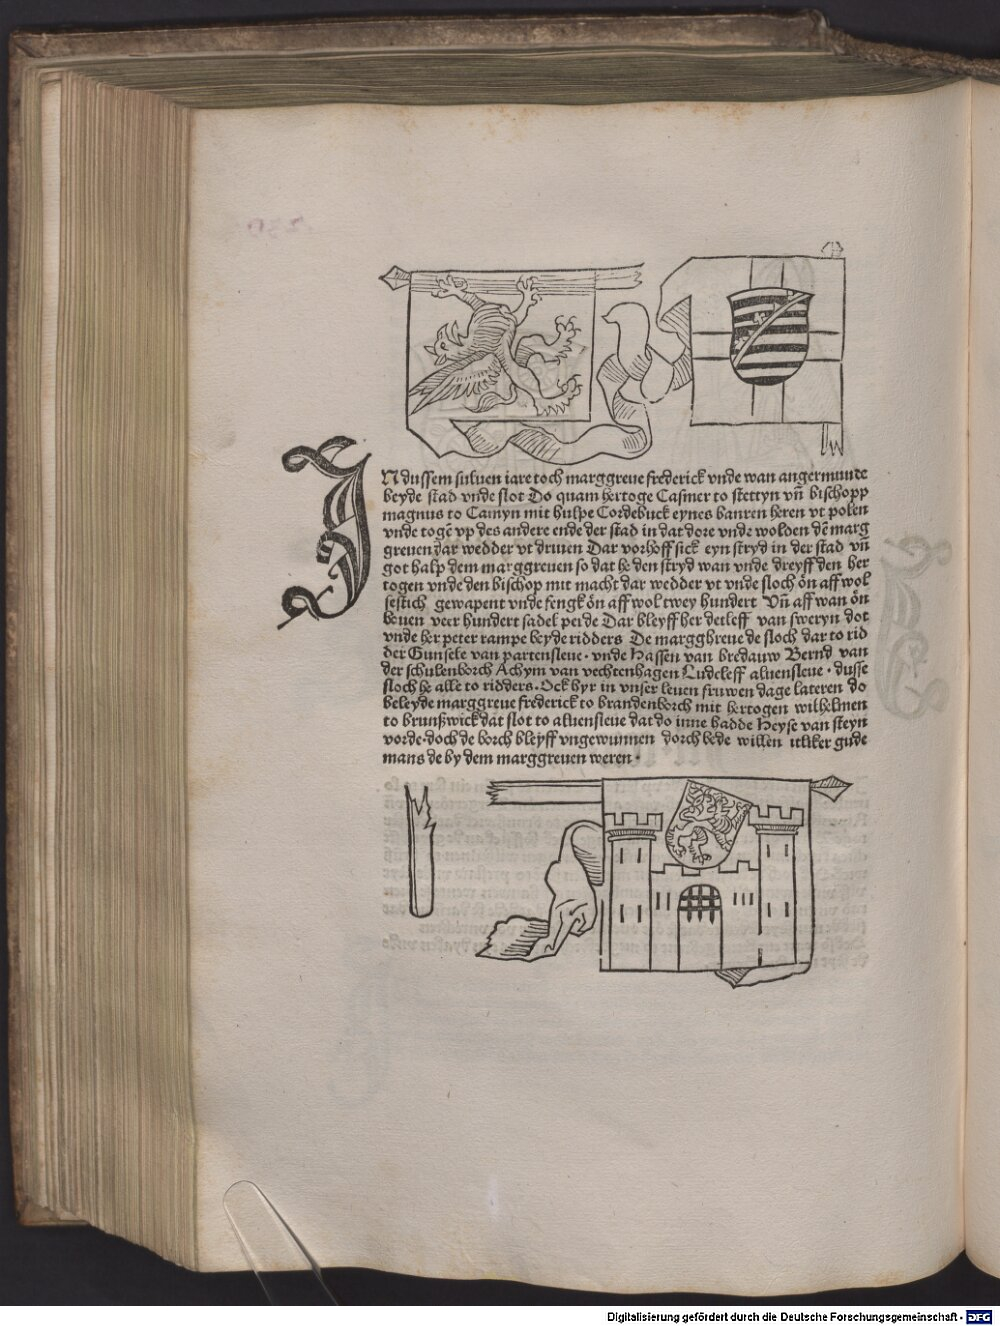 IN dussem suluen iare toch marggreue frederick vnde wan angermunde
beyde stad vnde slot Do quam hertoge Casmer to stettyn vn̄ bischopp
magnus to Camyn mit hulpe Cordebuck eynes banren heren vt polen
vnde togē vp des andere ende der stad in dat dore vnde wolden dē marg
greuen dar wedder vt druuen Dar vorhoff sick eyn stryd in der stad vn̄
got halp dem marggreuen so dat he den stryd wan vnde dreyff den her
togen vnde den bischop mit macht dar wedder vt vnde sloch ön aff wol
sestich gewapent vnde fengk ön aff wol twey hundert Vn̄ aff wan ön
bouen veer hundert sadel perde Dar bleyff her detleff van sweryn dot
vnde her peter rampe beyde ridders De marggreue de sloch dar to rid
der Gunsele van partensleue · vnde Hassen van bredauw Bernd van
der schulenborch Achym van vechtenhagen Ludeleff aluensleue · dusse
sloch he alle to ridders · Ock hyr in vnser leuen fruwen dage lateren do
beleyde marggreue frederick to brandenborch mit hertogen wilhelmen
to brunßwick dat slot to aluensleue dat do inne hadde Heyse van steyn
vorde · doch de borch bleyff vngewunnen dorch bede willen itliker gude
mans de by dem marggreuen weren ·
Digitalisierung gefördert durch die Deutsche Forschungsgemeinschaft - DFG